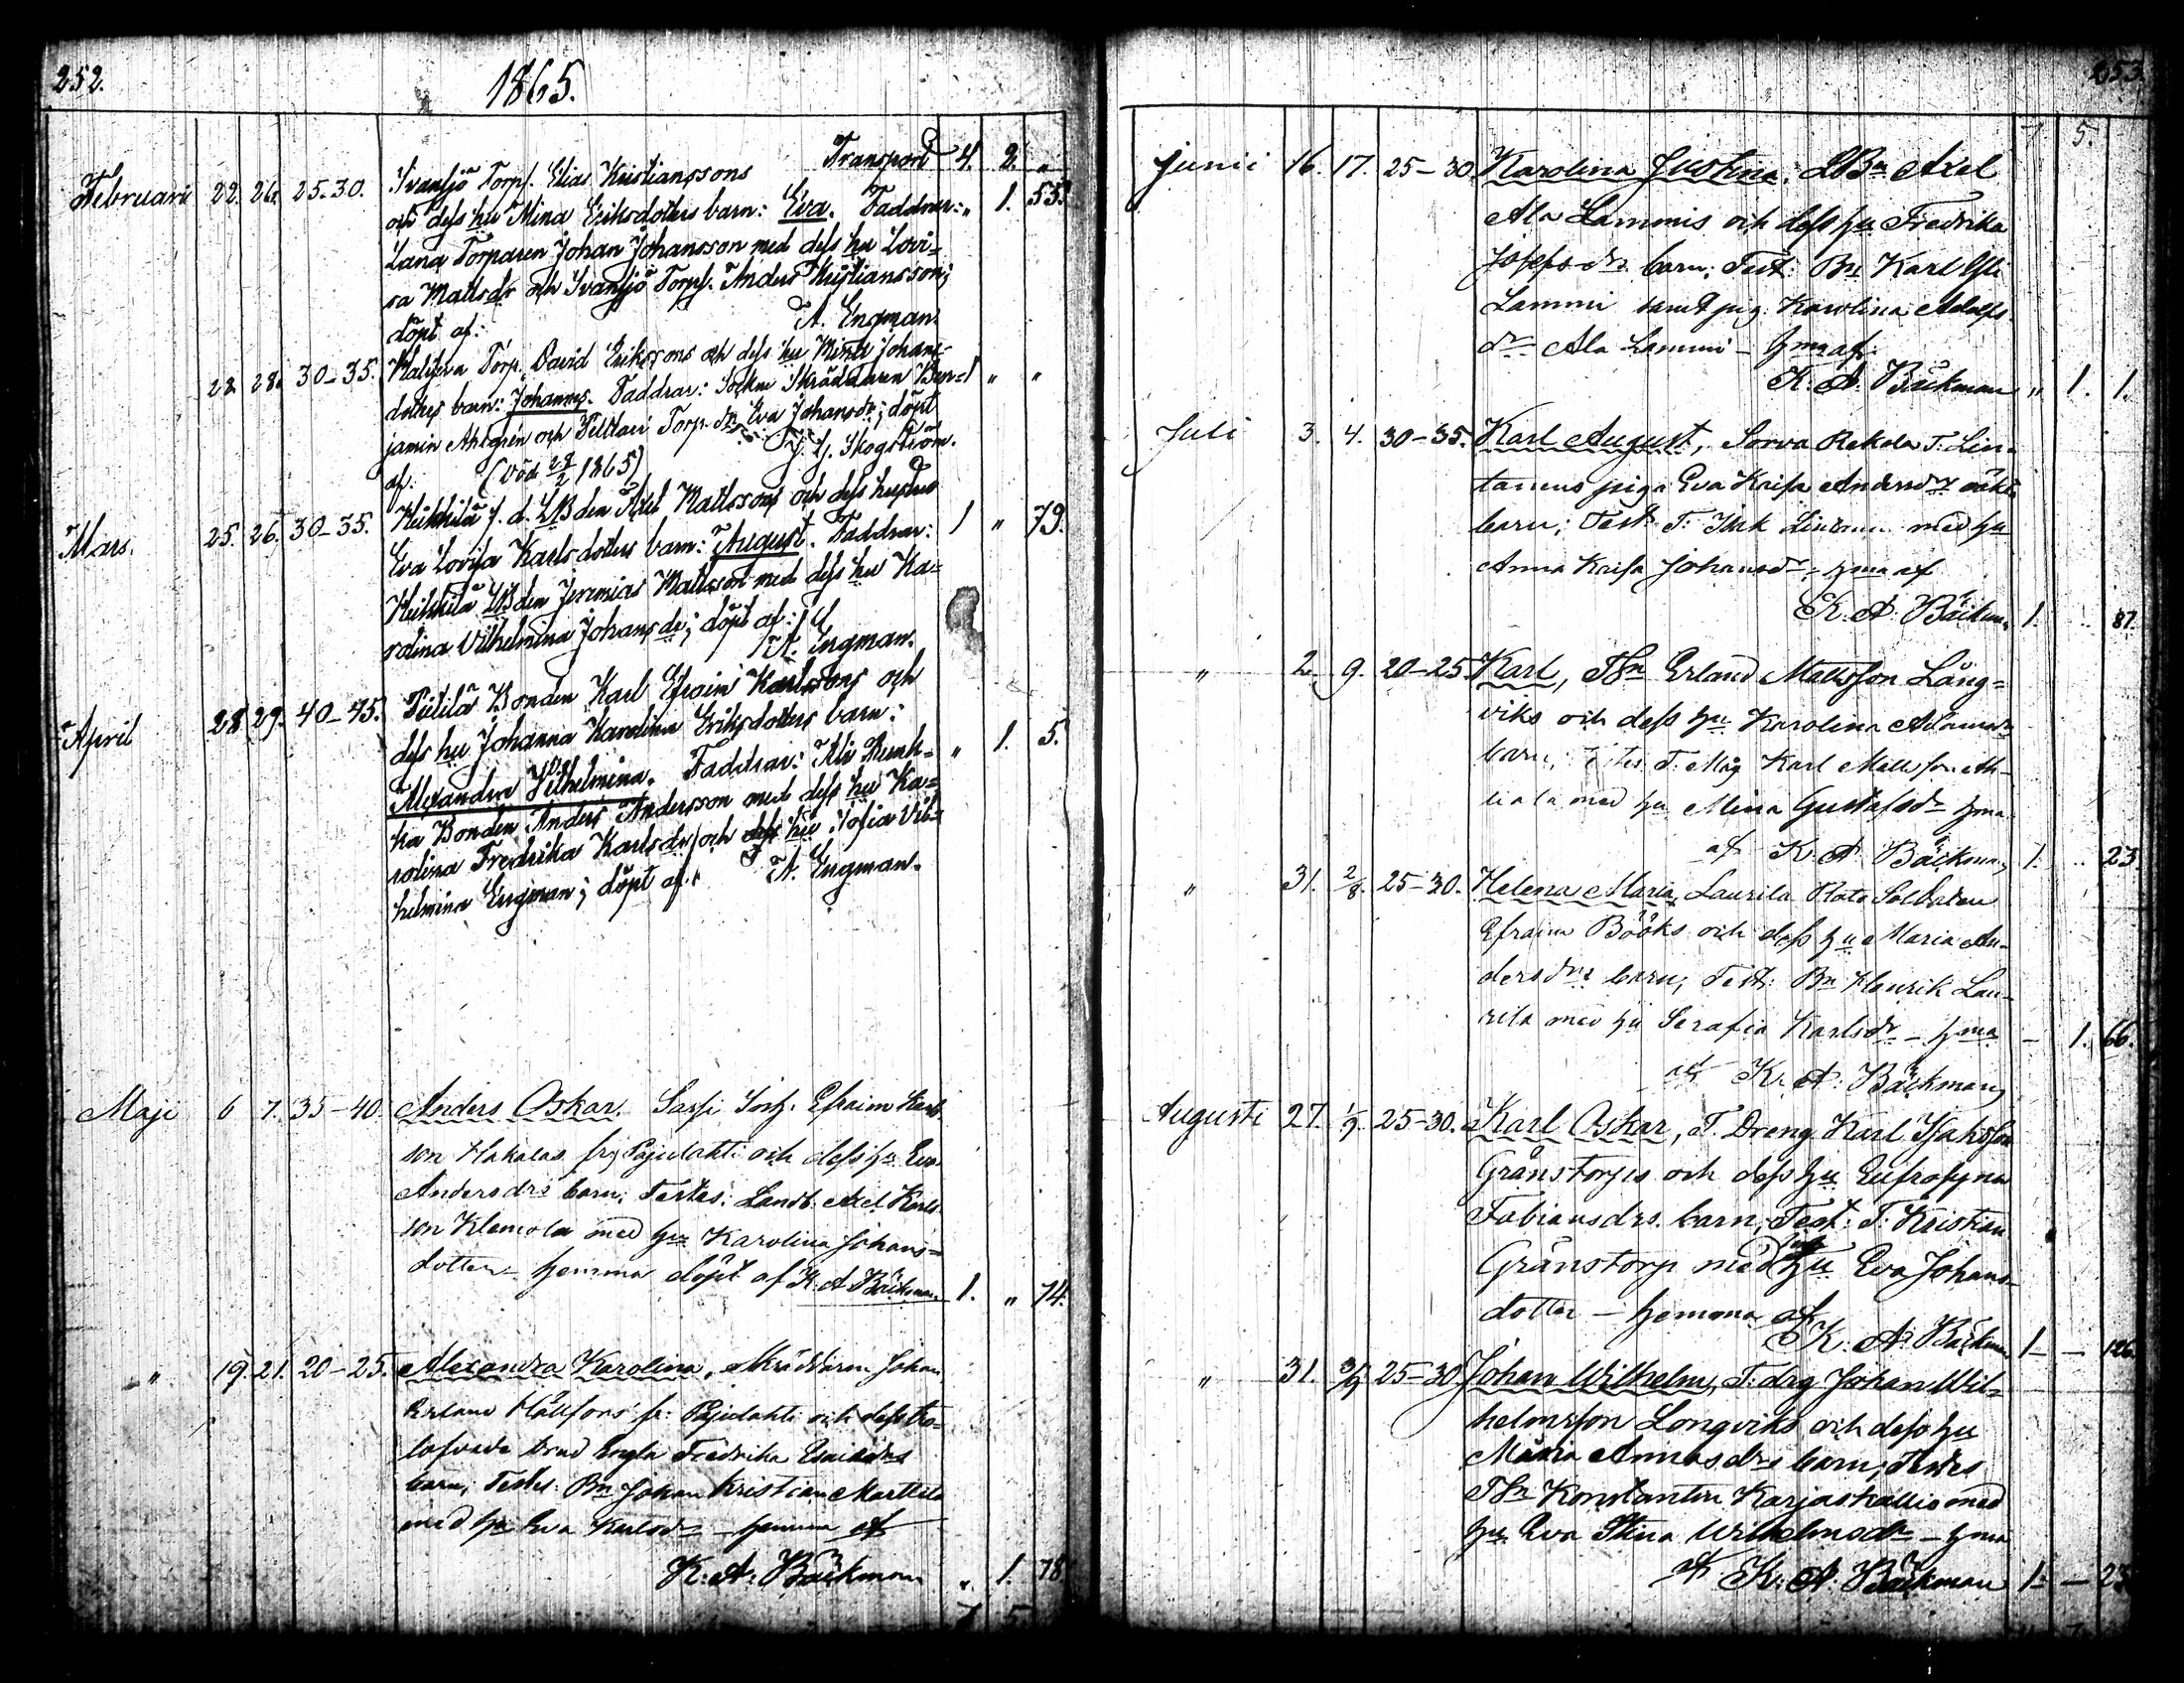 252.
1865.
Transport 4. 2. "
Februarii 22. 26. 25-30. Ivarsjö Torp. Elias Kristianssons
och dess hu Mina Eriksdotters barn: Eva. Faddrar: " 1. 53.
Lana Torparen Johan Johansson med dess hu Lovi-
sa Matts dr och Ivarsjö Torp. Anders Kristiansson;
döpt af: A. Engman.
22 28. 30-35. Torp. David Erikssons och dess hu Johans-
dotters barn: Johannes. Faddrar: Socken Skräddaren Ben- 1 " "
jamin Ahlgrén och Torp. dr Eva Johansdr; döpt
af: (Död 28/2 1865) Skogström.
Mars. 25. 26. 30-35. Heikkilä f. d. LBden Axel Mattssons och dess hustru 1 " 79.
Eva Lovisa Karlsdotters barn: August. Faddrar:
Heikkilä LBden Jeremias Mattsson med dess hu Ka-
rolina Vilhelmina Johans dr; döpt af:
A. Engman.
April 28 29. 40-45. Pietilä Bonden Karl Efraim Karlssons och
dess hu Johanna Karolina Eriksdotters barn: " 1. 5.
Alexandra Vilhelmina. Faddrar:
ka Bonden Anders Andersson med dess hu Ka-
rolina Fredrika Karls dr och dess hu Sofia Vil-
helmina Engman; döpt af: A. Engman.
Maji 6 7. 35-40. Anders Oskar. Efraim Karls-
son Hakalas frg Pajulahti och dess hu Eva
Andersdrs barn; Testes: Landb. Axel Karls-
son Klemola med hu Karolina Johans-
dotter - hemma döpt af K. A. Bäckman. 1. " 74.
" 19. 21. 20-25. Alexandra Karolina, Skräddaren Johan
Erland Hällfors fr: Pajulahti och dess tro-
lofvade brud Engla Fredrika
barn; Testes: Bn Johan Kristian Marttila
med hu Eva Karlsdr - hemma af
K. A. Bäckman " 1. 78
7 5
253
7 5.
Junii 16. 17. 25-30. Karolina Justina; LBn Axel
Ala Lammis och dess hu Fredrika
Josefs drs barn; Test: Bn Karl Yli
Lammi samt pig. Karolina Adolfs
dr Ala Lammi - hma af
K. A. Bäckman " 1. 1.
Juli 3. 4. 30-35. Karl August, Sorva Rekola T. Lin-
tanens piga Eva Kaisa Andersdrs oäkta
barn; Test: T: med hu
Anna Kaisa Johansdr; hma af
K. A. Bäckman 1. .. 87.
" 2. 9. 20-25. Karl, Erland Mattsson Lång-
viks och dess hu Karolina Adamsdrs
barn; Testes T. Måg Karl Mattsson
med hu Mina Gustafsdr hma
af K. A. Bäckman 1. .. 23
" 31. 2/8. 25-30. Helena Maria, Laurila Rote Soldaten
Efraim Bööks och dess hu Maria An-
dersdrs barn; Test: Bn Henrik Lau-
rila med hu Serafia Karlsdr - hma - 1. 66.
af K. A. Bäckman
Augusti 27. 1/9. 25-30. Karl Oskar, T. Dreng Karl Isaksson
Gränstorps och dess hu Eufrosyna
Fabiansdrs. barn; Test: T. Kristian
Gränstorp med hu Eva Johans-
dotter - hemma af
K. A. Bäckman 1 - 126
" 31. 3/9 25-30. Johan Wilhelm, T. drg Johan Wil-
helmsson Longviks och dess hu
Maria drs barn; Testes
Konstantin Karjaskallio med
hu Eva Stina Wilhelmsdr - hma
af K. A. Bäckman 1 - 23